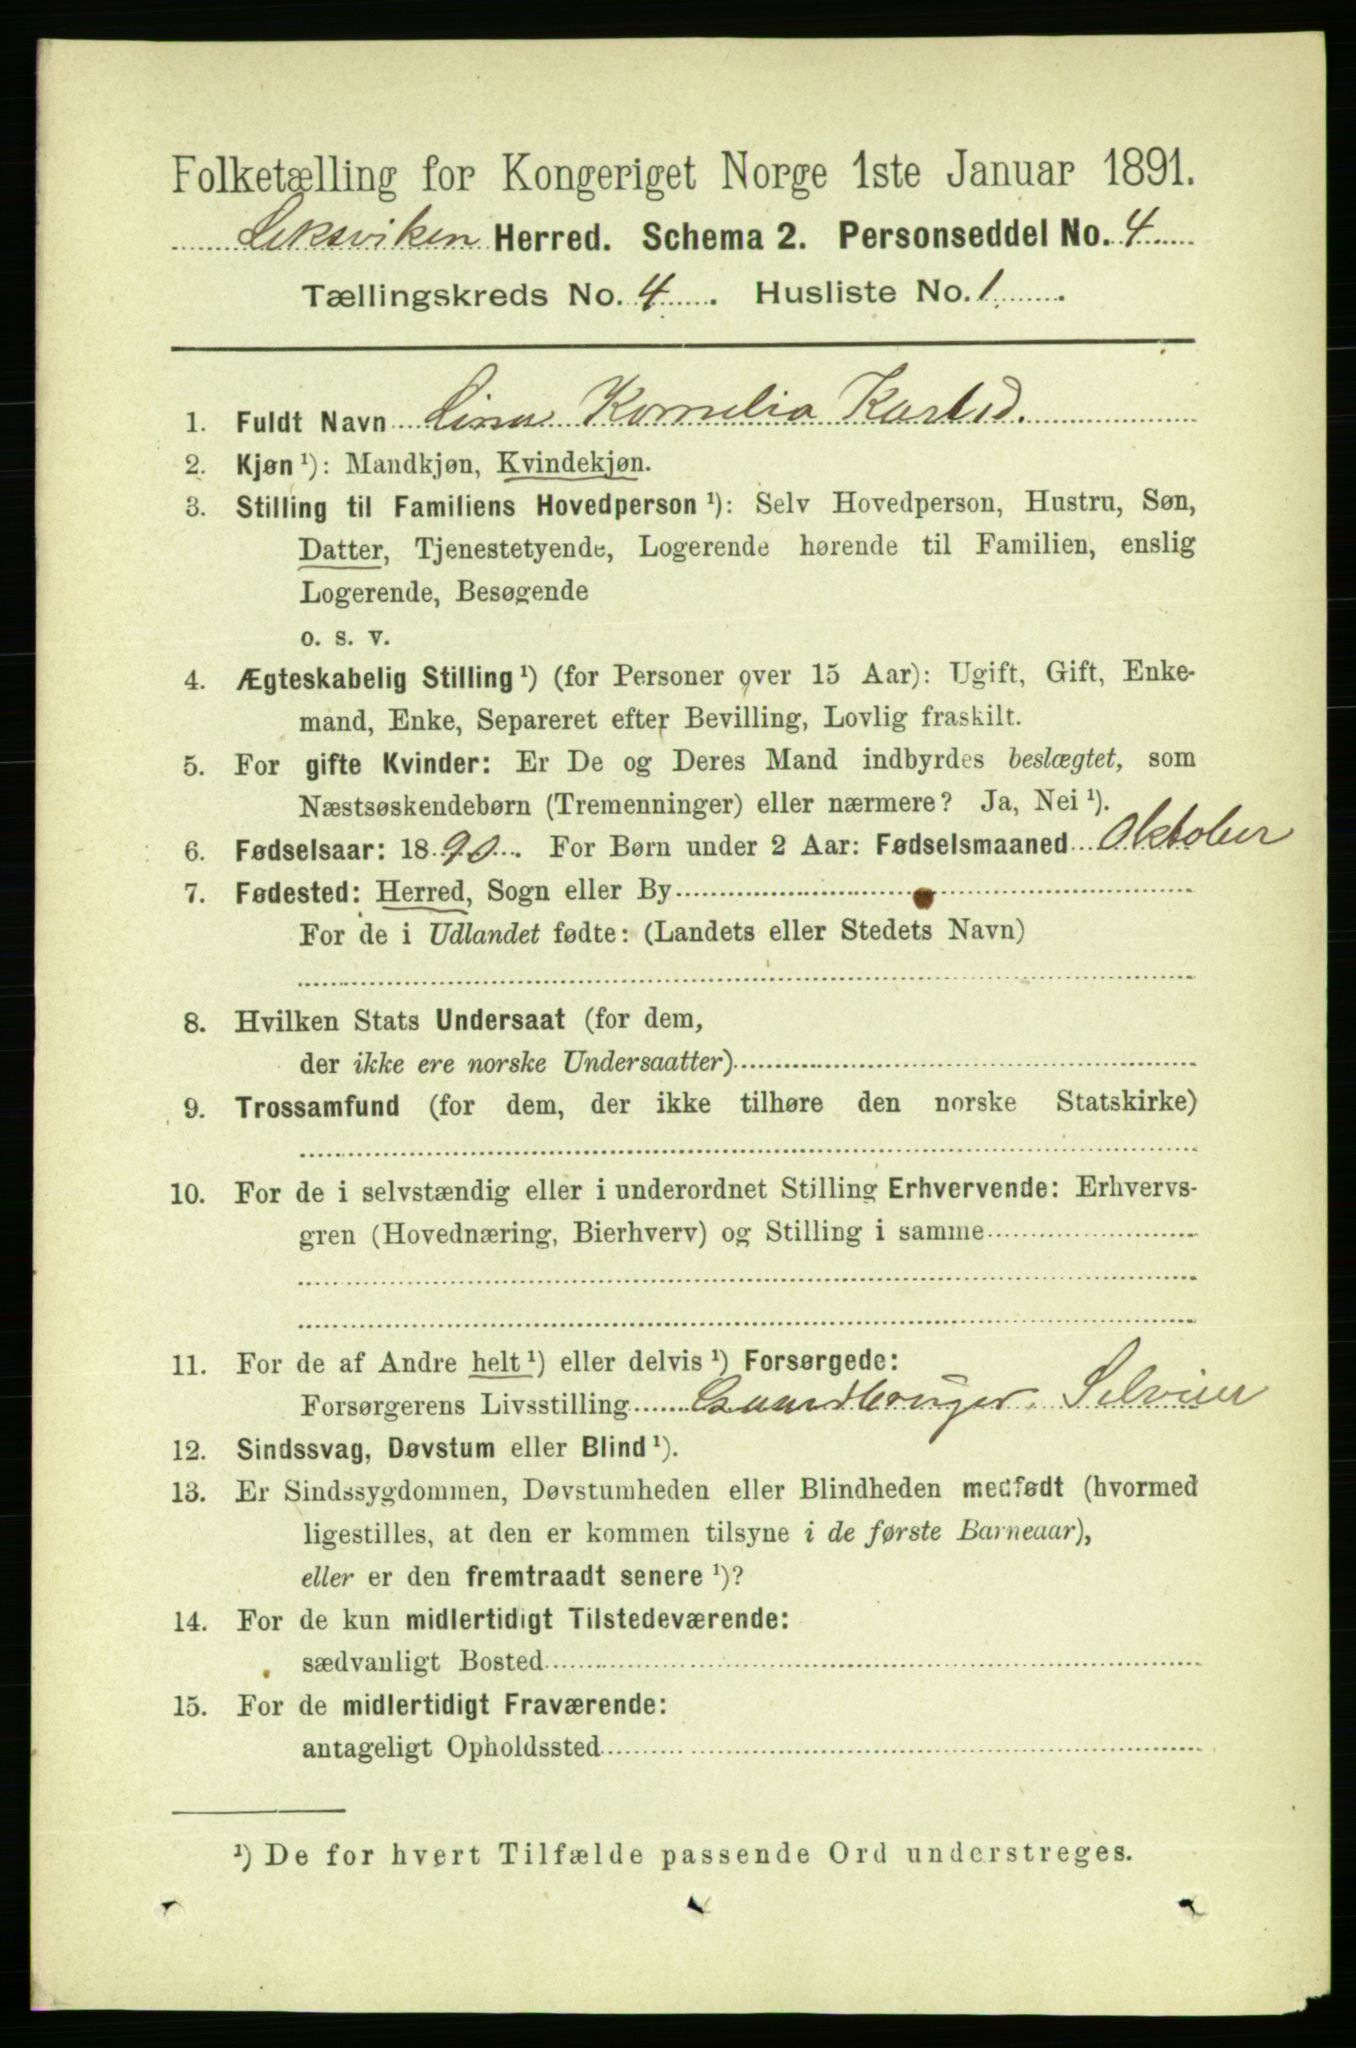 Folketælling for Kongeriget Norge 1ste Januar 1891.
Leksviken Herred. Schema 2. Personseddel No. 4
Tællingskreds No. 4. Husliste No. 1.
1. Fuldt Navn Lina Kornelia Karlsd.
2. Kjøn ¹): Mandkjøn, Kvindekjøn.
3. Stilling til Familiens Hovedperson ¹): Selv Hovedperson, Hustru, Søn,
Datter, Tjenestetyende, Logerende hørende til Familien, enslig
Logerende, Besøgende
o. s. v.
4. Ægteskabelig Stilling ¹) (for Personer over 15 Aar): Ugift, Gift, Enke-
mand, Enke, Separeret efter Bevilling, Lovlig fraskilt.
5. For gifte Kvinder: Er De og Deres Mand indbyrdes beslægtet, som
Næstsøskendebørn (Tremenninger) eller nærmere? Ja, Nei ¹).
6. Fødselsaar: 1890. For Børn under 2 Aar: Fødselsmaaned Oktober
7. Fødested: Herred, Sogn eller By
For de i Udlandet fødte: (Landets eller Stedets Navn)
8. Hvilken Stats Undersaat (for dem,
der ikke ere norske Undersaatter)
9. Trossamfund (for dem, der ikke tilhøre den norske Statskirke)
10. For de i selvstændig eller i underordnet Stilling Erhvervende: Erhvervs-
gren (Hovednæring, Bierhverv) og Stilling i samme
11. For de af Andre helt ¹) eller delvis ¹) Forsørgede:
Forsørgerens Livsstilling Gaardbruger, Selveier
12. Sindssvag, Døvstum eller Blind ¹).
13. Er Sindssygdommen, Døvstumheden eller Blindheden medfødt (hvormed
ligestilles, at den er kommen tilsyne i de første Barneaar),
eller er den fremtraadt senere ¹)?
14. For de kun midlertidigt Tilstedeværende:
sædvanligt Bosted
15. For de midlertidigt Fraværende:
antageligt Opholdssted
¹) De for hvert Tilfælde passende Ord understreges.